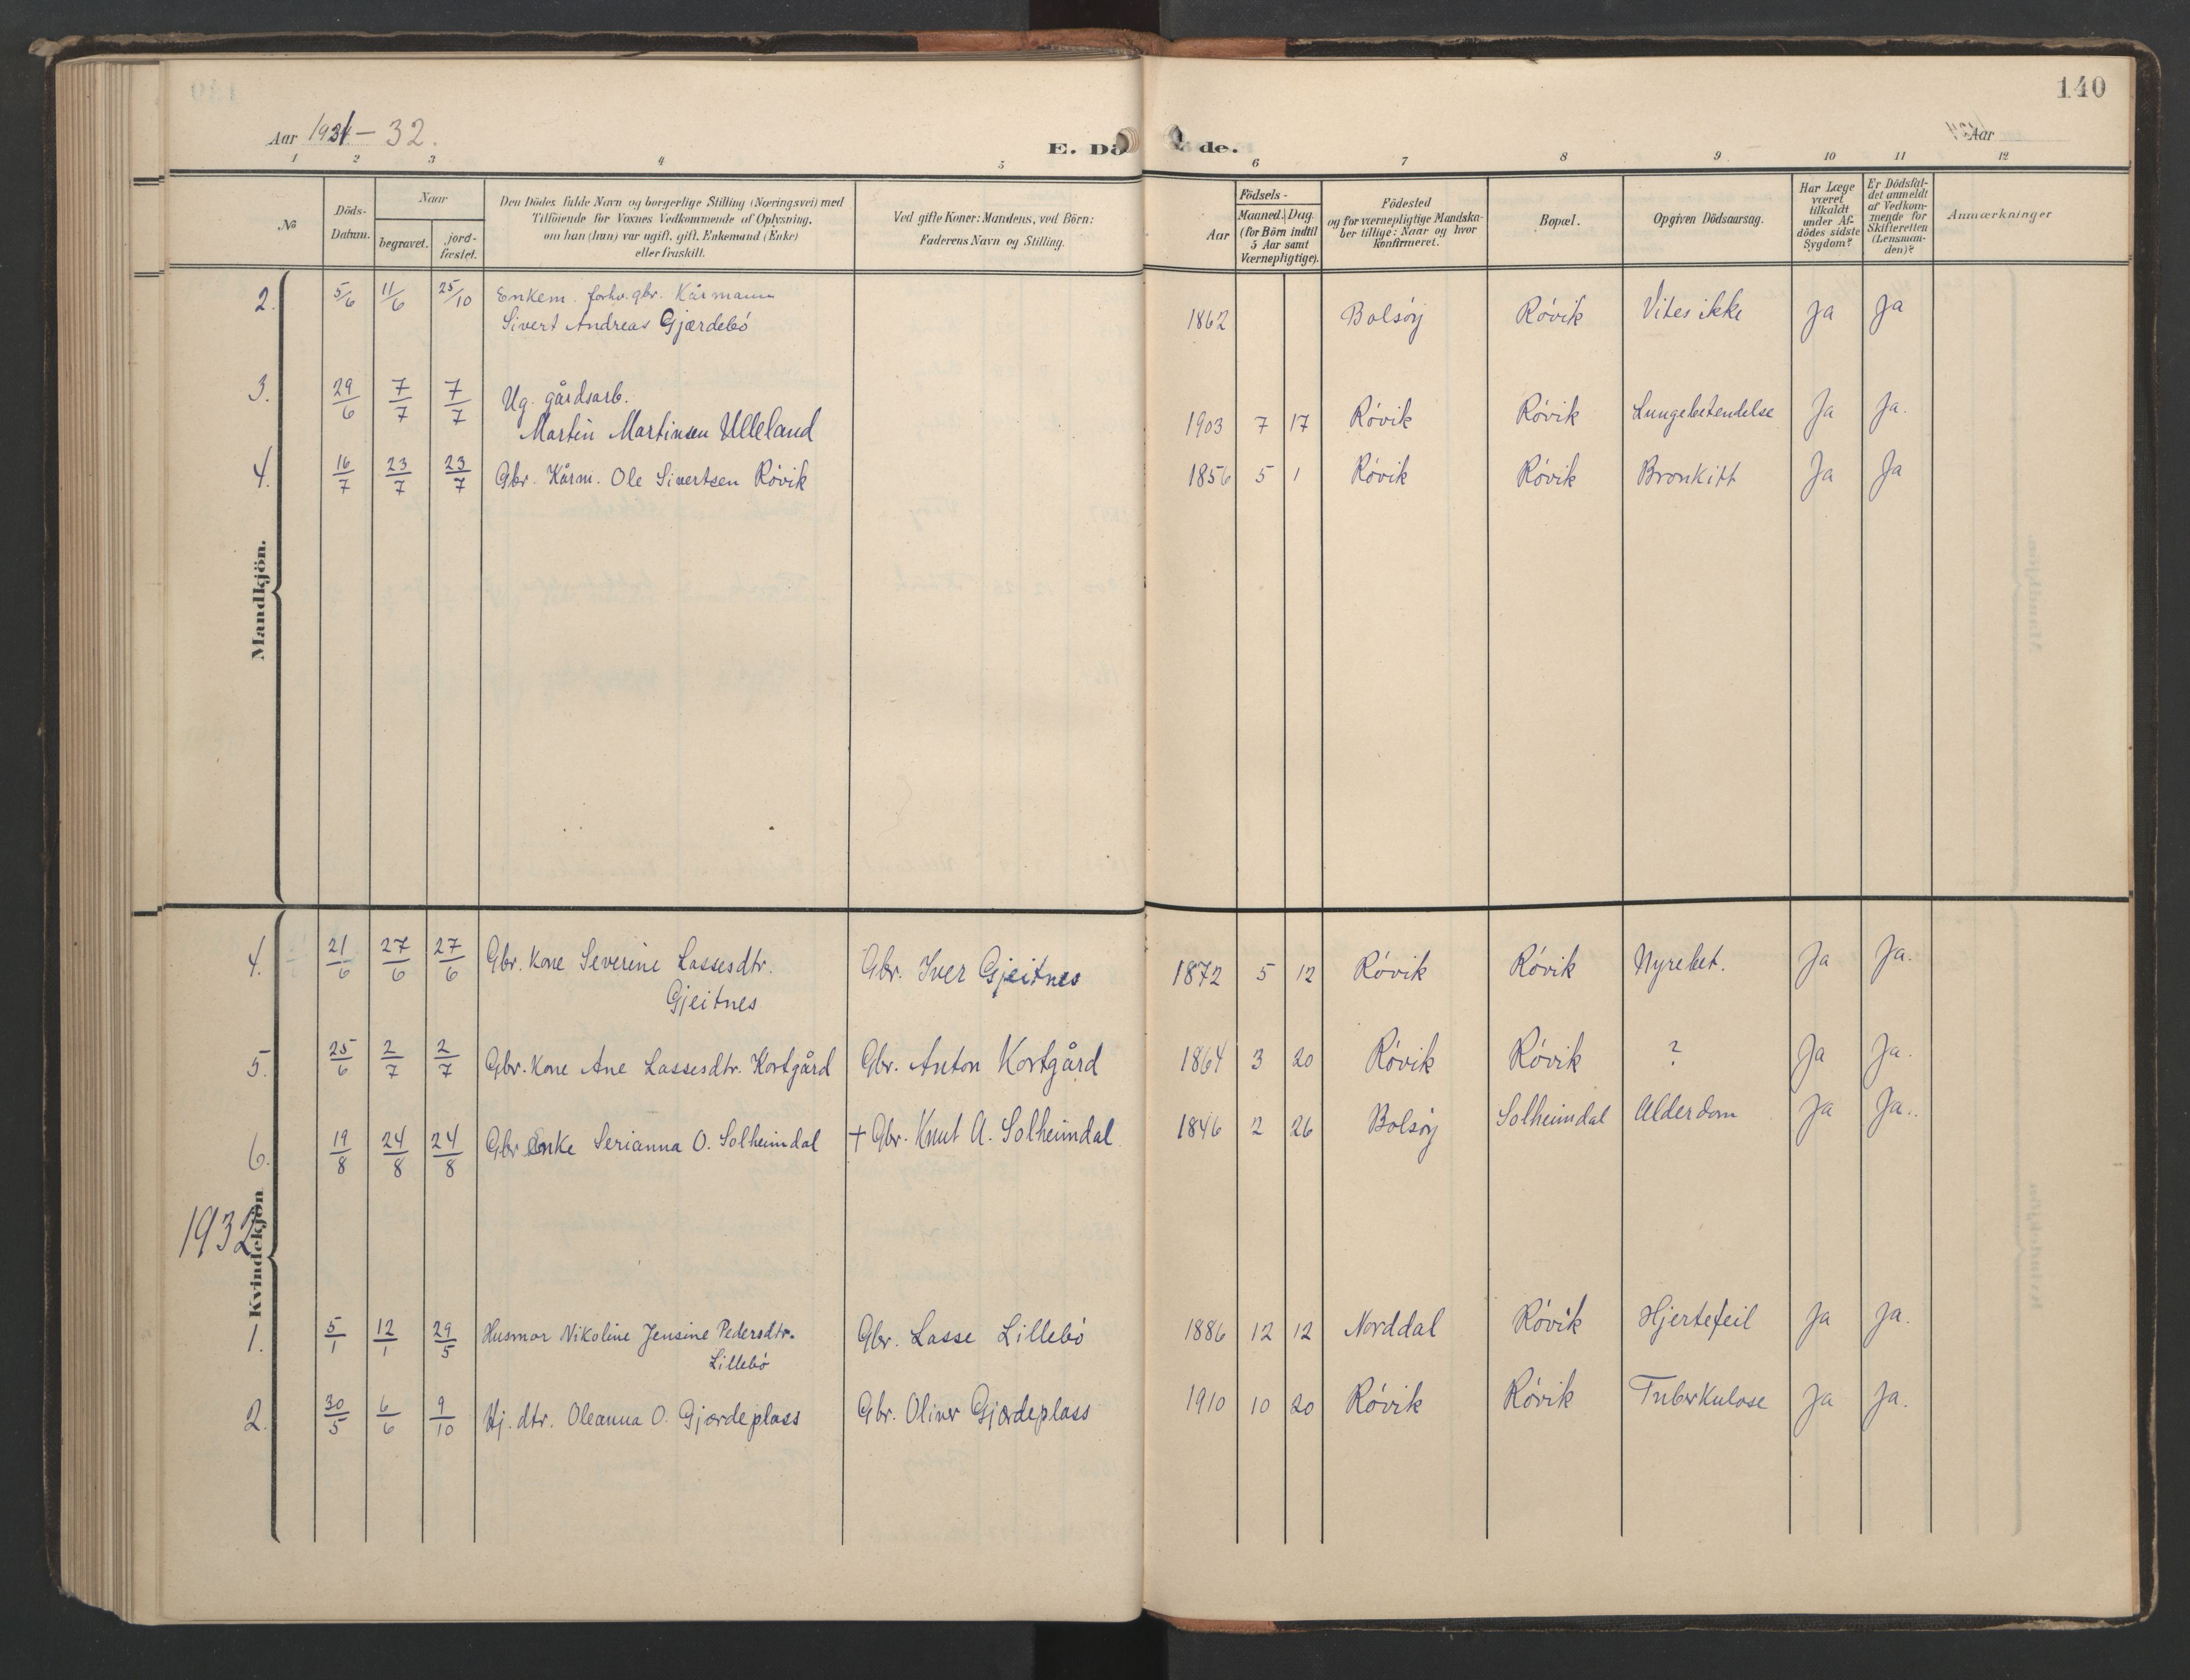 140
Aar 1931 - 32.
E. Dö de.
Aar
1 2 3 4 5 6 7 8 9 10 11 12
No
Döds-Datum.
Naar
begravet.
jord-fæstet.
Den Dödes fulde Navn og borgerlige Stilling (Næringsvei) med
Tilföiende for Voxnes Vedkommende af Oplysning,
om han (hun) var ugift, gift, Enkemand (Enke)
eller fraskilt.
Ved gifte Koner: Mandens, ved Börn:
Faderens Navn og Stilling.
Födsels-
Aar
Maaned. Dag.
(for Börn indtil
5 Aar samt
Værnepligtige).
Födested
og for værnepligtige Mandska-
ber tillige: Naar og hvor
Konfirmeret.
Bopæl.
Opgiven Dödsaarsag.
Har Læge
været
tilkaldt
under Af-
dödes sidste
Sygdom?
Er Dödsfal-
det anmeldt
af Vedkom-
mende for
Skifteretten
(Lensman-
den)?
Anmærkninger
Mandkjön.
2. 5/6 11/6 25/10 Enkem. forhv. gbr. Kårmann
Sivert Andreas Gjærdebó 1862 Bolsóy Róvik Vites ikke Ja Ja
3. 29/6 7/7 7/7 Ug. gårdsarb.
Martin Martinsen Ulleland 1903 7 17 Róvik Róvik Lungebetendelse Ja Ja.
4. 16/7 23/7 23/7 Gbr. Kårm. Ole Sivertsen Róvik 1856 5 1 Róvik Róvik Bronkitt Ja Ja
Kvindekjön
4. 21/6 27/6 27/6 Gbr. Kone Severine Lassesdtr. Gbr. Iver Gjeitnes 1872 5 12 Róvik Róvik Nyrebet. Ja Ja.
Gjeitnes
5. 25/6 2/7 2/7 Gbr. Kone Ane Lassesdtr. Kortgård Gbr. Anton Kortgård 1864 3 20 Róvik Róvik ? Ja Ja.
6. 19/8 24/8 24/8 Gbr Enke Serianna O. Solheimdal + Gbr. Knut A. Solheimdal 1846 2 26 Bolsóy Solheimdal Alderdom Ja Ja.
1932
1. 5/1 12/1 29/5 Husmor Nikoline Jensine Pedersdtr. Gbr. Lasse Lillebó 1886 12 12 Norddal Róvik Hjertefeil Ja Ja.
Lillebó
2. 30/5 6/6 9/10 Hj. dtr. Oleanna O. Gjærdeplass Gbr. Oliver Gjærdeplass 1910 10 20 Róvik Róvik Tuberkulose Ja Ja.